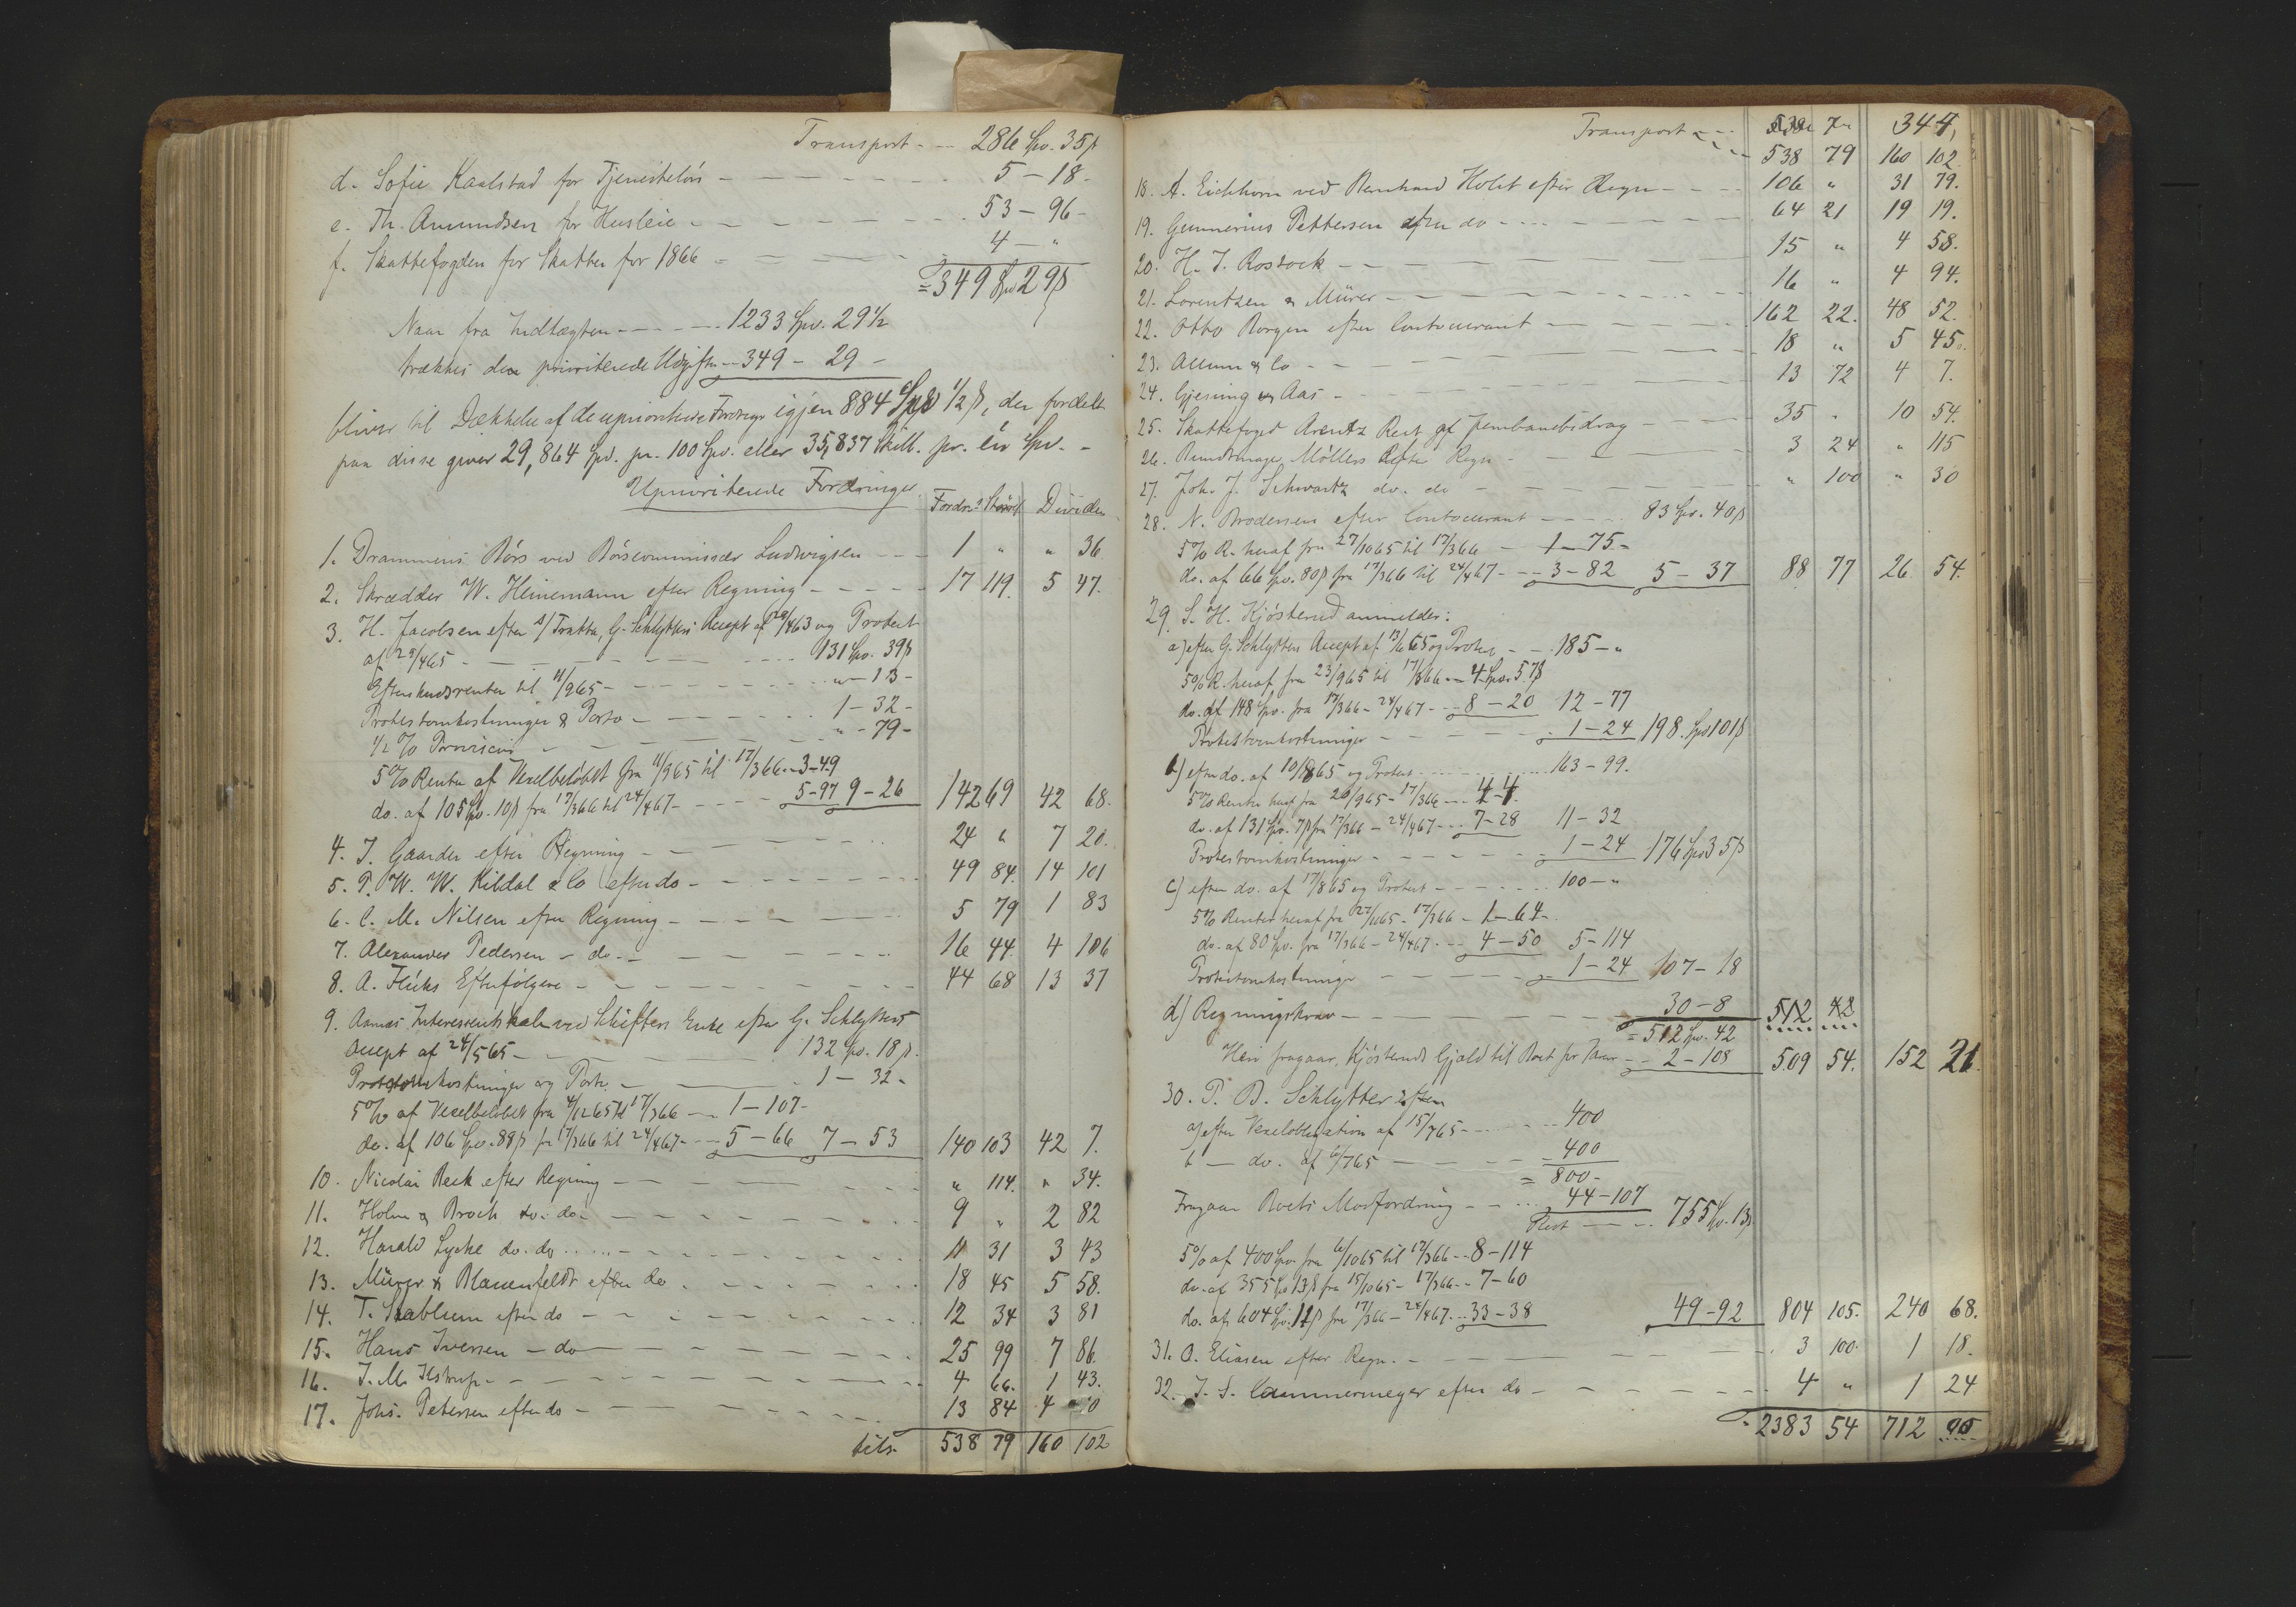 Transport - - 286 Spd. 35 ß
d. Sofie Kaalstad for Tjenesteløn - - - 5 - 18 -
e. Th. Amundsen for Husleie - - - 53 - 96 -
f. Skattefogden for Skatter for 1866 - - - 4 - "
= 349 Spd 29 ß
Naar fra Indtægten - - - 1233 Spd. 29 1/2
trækkes de prioriterede Udgifter - - 349 - 29 -
bliver til Dækkelse af de uprioriterede Fordringer igjen 884 Spd 1/2 ß, der fordelt
paa disse giver 29,864 Spd. pr. 100 Spd. eller 35,837 Skill. pr. én Spd. -
Uprioriterede Fordringer
Fordr.s Størrelse Dividen
1. Drammens Børs ved Børscommissær Ludwigsen - - - 1 " " 36
2. Skrædder W. Heinemann efter Regning - - - 17 119. 5 47.
3. H. Jacobsen efter Tratta, G. Schlytters Accept af 28/463 og Protest
af 28/465 - - - 131 Spd. 39 ß
Efterskudsrenter til 11/965 - - - " - 13 -
Protestomkostninger & Porto - - - 1 - 32 -
1/2 % Provision - - - " - 79 -
5 % Renter af Vexelbeløbet fra 11/965 til 17/366 - - 3 - 49
do. af 105 Spd. 10 ß fra 17/366 til 24/467 - - - 5 - 97 9 - 26 142 69 42 68.
4. J. Gaarder efter Regning - - - 24 " 7 20.
5. P. W. W. Kildal & Co efter do - - - 49 84. 14 101
6. C. M. Nilsen efter Regning - - - 5 79 1 83
7. Alexander Pedersen - do. - - - 16 44. 4 106
8. A. Flicks Efterfølgere - - - 44 68 13 37
9. Aamas Interessentskab ved Schefters Enke efter G. Schlytters
Accept af 24/565 - - - 132 Spd. 18 ß.
Protestomkostninger og Porto - - - 1 - 32 -
5 % af Vexelbeløbet fra 4/1265 til 17/366 - - 1 - 107 -
do. af 106 Spd. 88 ß fra 17/366 til 24/467 - - - 5 - 66 7 - 53 140 103 42 7.
10. Nicolai Beck efter Regning - - - " 114. " 34.
11. Holm & Brock do. do. - - - 9 " 2 82
12. Harald Lyche do. do. - - - 11 31 3 43
13. Mürer & Blauenfeldt efter do. - - - 18 45 5 58.
14. T. Stablum efter do - - - 12 34 3 81
15. Hans Iversen - do - - - 25 99 7 86.
16. J. M. Ilstrup - - - 4 66. 1 43.
17. Johs. Petersen efter do - - - 13 84 4 10
tils. 538 79 160 102
Transport - - -
538 79 160 102.
18. A. Eichhorn ved Bernhard Holst efter Regn - - - 106 " 31 79.
19. Gunnerius Pettersen efter do - - - 64 21 19 19.
20. H. J. Rostock - - - 15 " 4 58.
21. Lorentzen & Mürer - - - 16 " 4 94.
22. Otto Borgen efter Contocurant - - - 162 22. 48 52.
23. Allum & Co - - - 18 " 5 45.
24. Gjesing & Aas - - - 13 72 4 7.
25. Skattefoged Arentz Rest af Jernbanebidrag - - - 35 " 10 54.
26. Bundtmager Møllers efter Regn - - - 3 24 " 115
27. Joh. J. Schwartz do. do - - - " 100 " 30
28. N. Brodersen efter Contocurant - - - 83 Spd. 40 ß
5 % R. heraf fra 27/1065 til 17/366 - 1 - 75 -
do. af 66 Spd. 80 ß fra 17/366 til 24/467 - - - 3 - 82 5 - 37 88 77 26 54.
29. S. H. Kjøsterud anmelder:
a) efter G. Schlytters Accept af 13/665 og Protest - - 185 - "
5 % R. heraf fra 23/965 til 17/366 - - 4 Spd. 57 ß
do. af 148 Spd. fra 17/366 - 24/467 - - 8 - 20 12 - 77
Protestomkostninger - - - 1 - 24 198 Spd 101 ß
b) efter do. af 10/865 og Protest - - - 163 - 99.
5 % Renter heraf fra 20/965 - 17/366 - - 4 - 4.
do. af 131 Spd. 7 ß fra 17/366 - 24/467 - - 7 - 28 11 - 32
Protestomkostninger - - - 1 - 24 176 Spd 35 ß
c) efter do. af 17/865 og Protest - - - 100 - "
5 % Renter heraf fra 27/1165 - 17/366 - 1 - 64 -
do. af 80 Spd. fra 17/366 - 24/467 - - 4 - 50 5 - 114
Protestomkostninger - - - 1 - 24 107 - 18
d) Regningskrav - - - 30 - 8 512 42
= 512 Spd. 42
Heri fragaar, Kjøsteruds Gjæld til Boet for Varer - - 2 - 108 509 54. 152 21.
30. P. B. Schlytter
a) efter Vexelobligation af 15/765 - - - 400
b - do. af 6/765 - - - 400
= 800 -
Fragaar Boets Modfordring - - - 44 - 107
Rest - - - 755 Spd. 13 ß
5 % af 400 Spd. fra 6/1065 til 17/366 - - 8 - 114
do. af 355 Spd 13 ß fra 15/1065 - 17/366 - - 7 - 60
do. af 604 Spd. 11 ß fra 17/366 - 24/467 - - 33 - 38 49 - 92 804 105. 240 68.
31. O. Eliasen efter Regn. - - - 3 100. 1 18.
32. J. S. Cammermeyer efter do - - - 4 " 1 24
2383 54 712 90